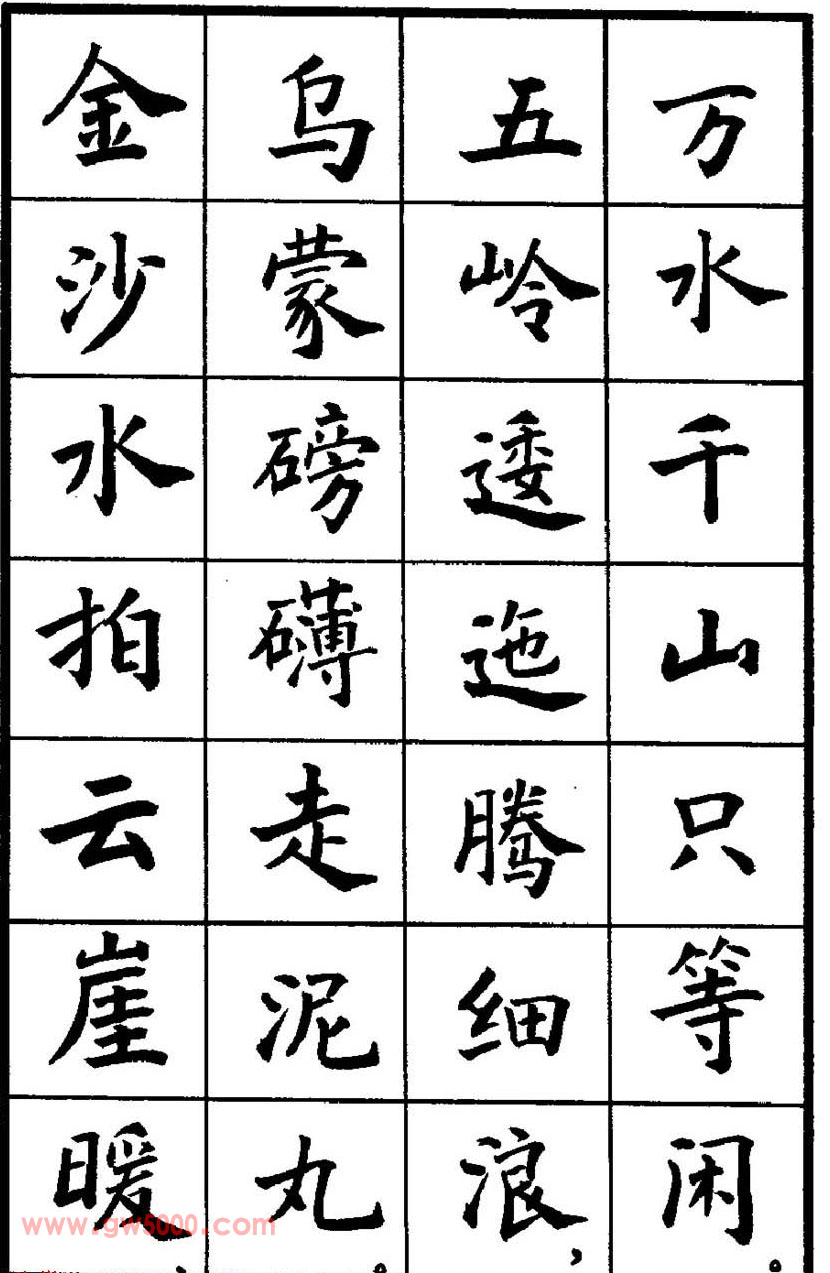 万水千山只等闲。
五岭逶迤腾细浪，
乌蒙磅礴走泥丸。
金沙水拍云崖暖，
www.gw5000.com